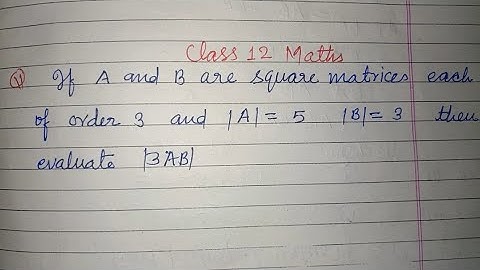 Class 12 Maths
Q If A and B are square matrices each
of order 3 and |A| = 5 |B| = 3 then
evaluate |3AB|